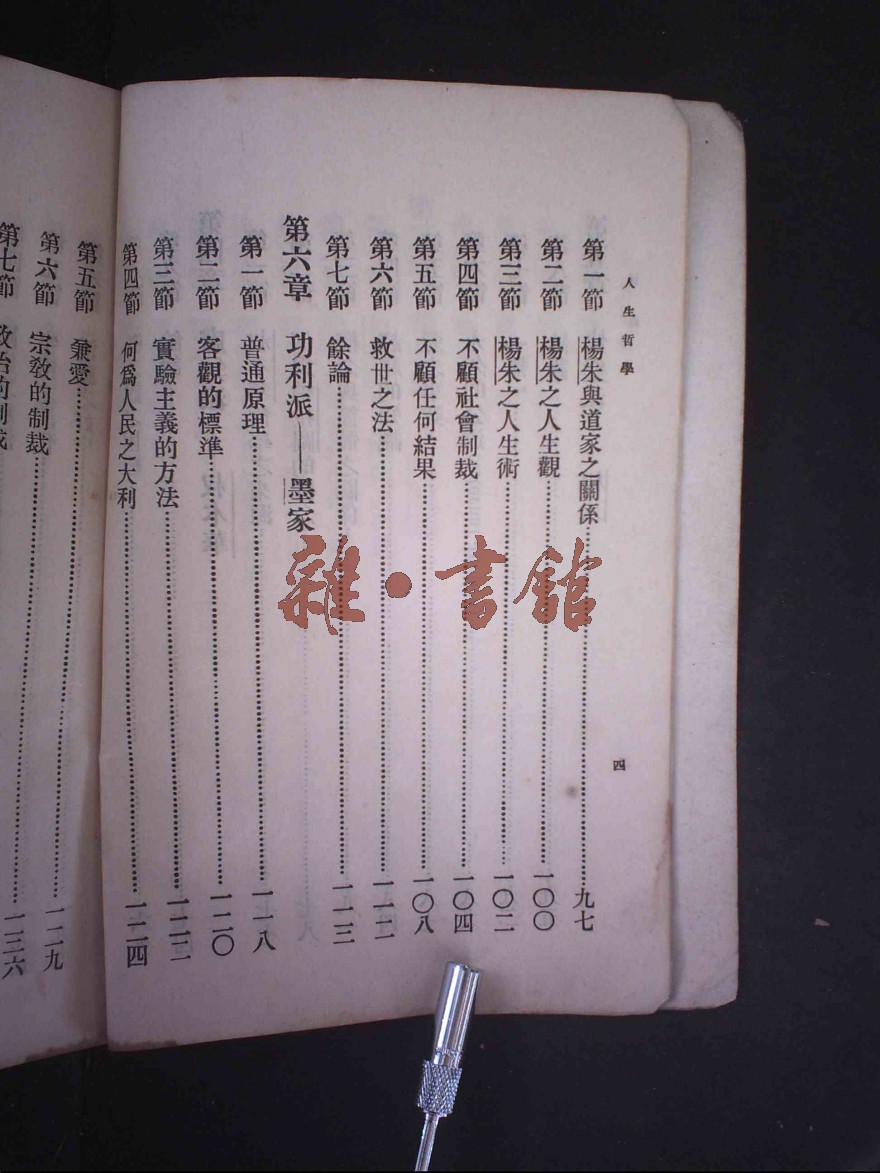 人生哲學
四
第一節 楊朱與道家之關係……九七
第二節 楊朱之人生觀……一〇〇
第三節 楊朱之人生術……一〇二
第四節 不顧社會制裁……一〇四
第五節 不顧任何結果……一〇八
第六節 救世之法……一一二
第七節 餘論……一一三
第六章 功利派——墨家
第一節 普通原理……一一八
第二節 客觀的標準……一二〇
第三節 實驗主義的方法……一二二
第四節 何爲人民之大利……一二四
第五節 兼愛……
第六節 宗教的制裁……一二九
第七節 政治的制裁……一三六
雜·書館